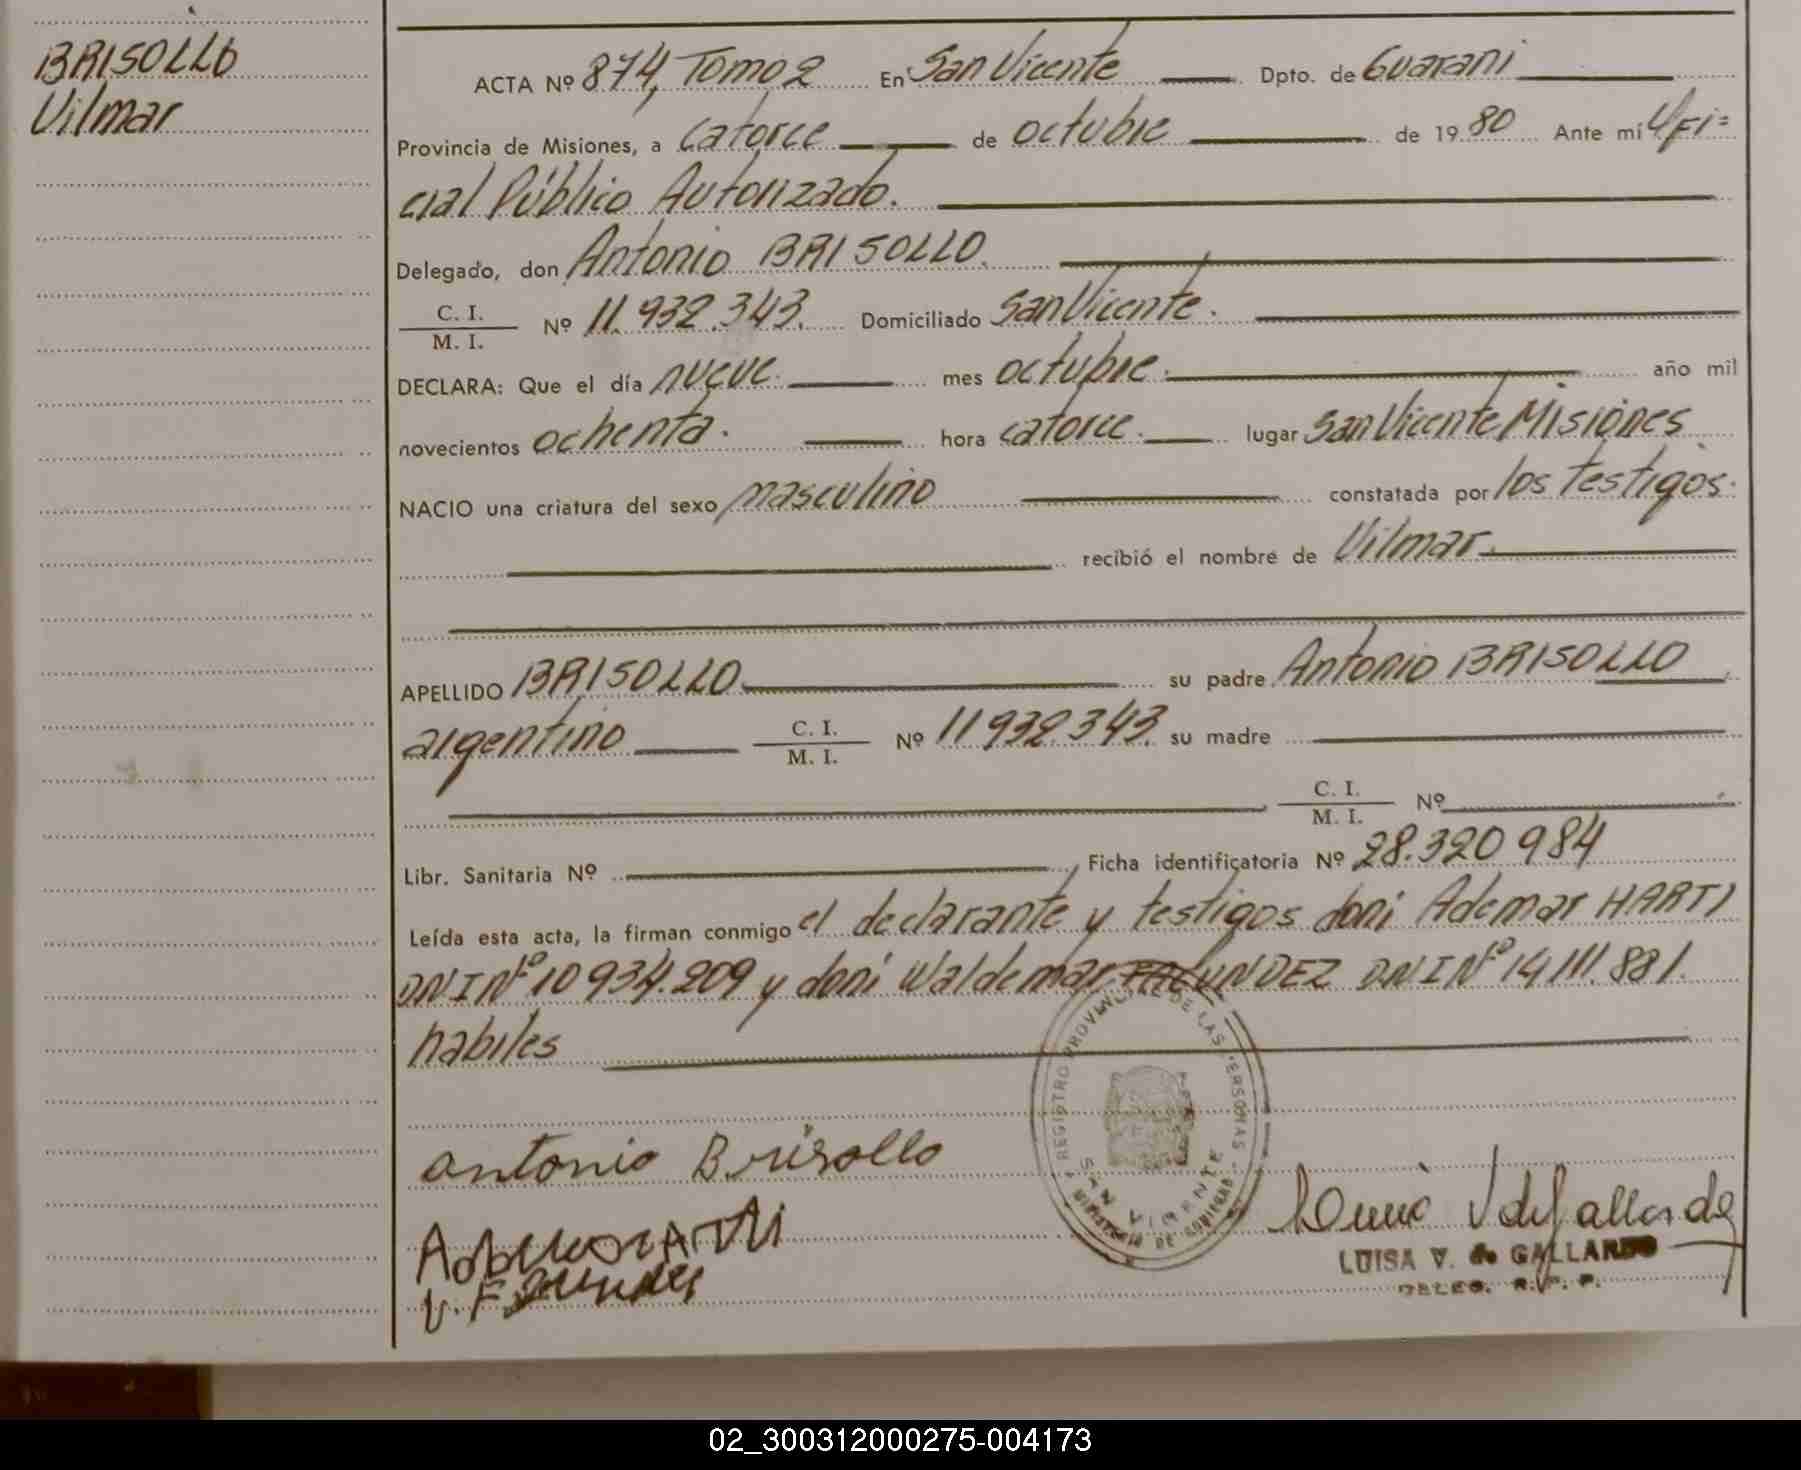 BRISOLLO
Vilmar
ACTA Nº 874, Tomo 2 En San Vicente Dpto. de Guarani
Provincia de Misiones, a catorce de octubre de 1980 Ante mí Ofi=
cial Público Autorizado.
Delegado, don Antonio BRISOLLO.
C. I.
M. I. Nº 11.932.343. Domiciliado San Vicente.
DECLARA: Que el día nueve mes octubre. año mil
novecientos ochenta. hora catorce. lugar San Vicente Misiones
NACIO una criatura del sexo masculino constatada por los testigos.
recibió el nombre de Vilmar.
APELLIDO BRISOLLO su padre Antonio BRISOLLO
argentino C. I.
M. I. Nº 11932.343. su madre
C. I.
M. I. Nº
Libr. Sanitaria Nº Ficha identificatoria Nº 28.320 984
Leída esta acta, la firman conmigo el declarante y testigos doni Ademar HARTI
DNI Nº 10 934.209 y doni Waldemar FACUNDEZ DNI Nº 14 111.881.
habiles
REGISTRO PROVINCIAL DE LAS PERSONAS
SAN VICENTE
MINISTERIO DE GOBIERNO
antonio Brisollo
LUISA V. de GALLARDO
DELEG. R. P. P.
02_300312000275-004173